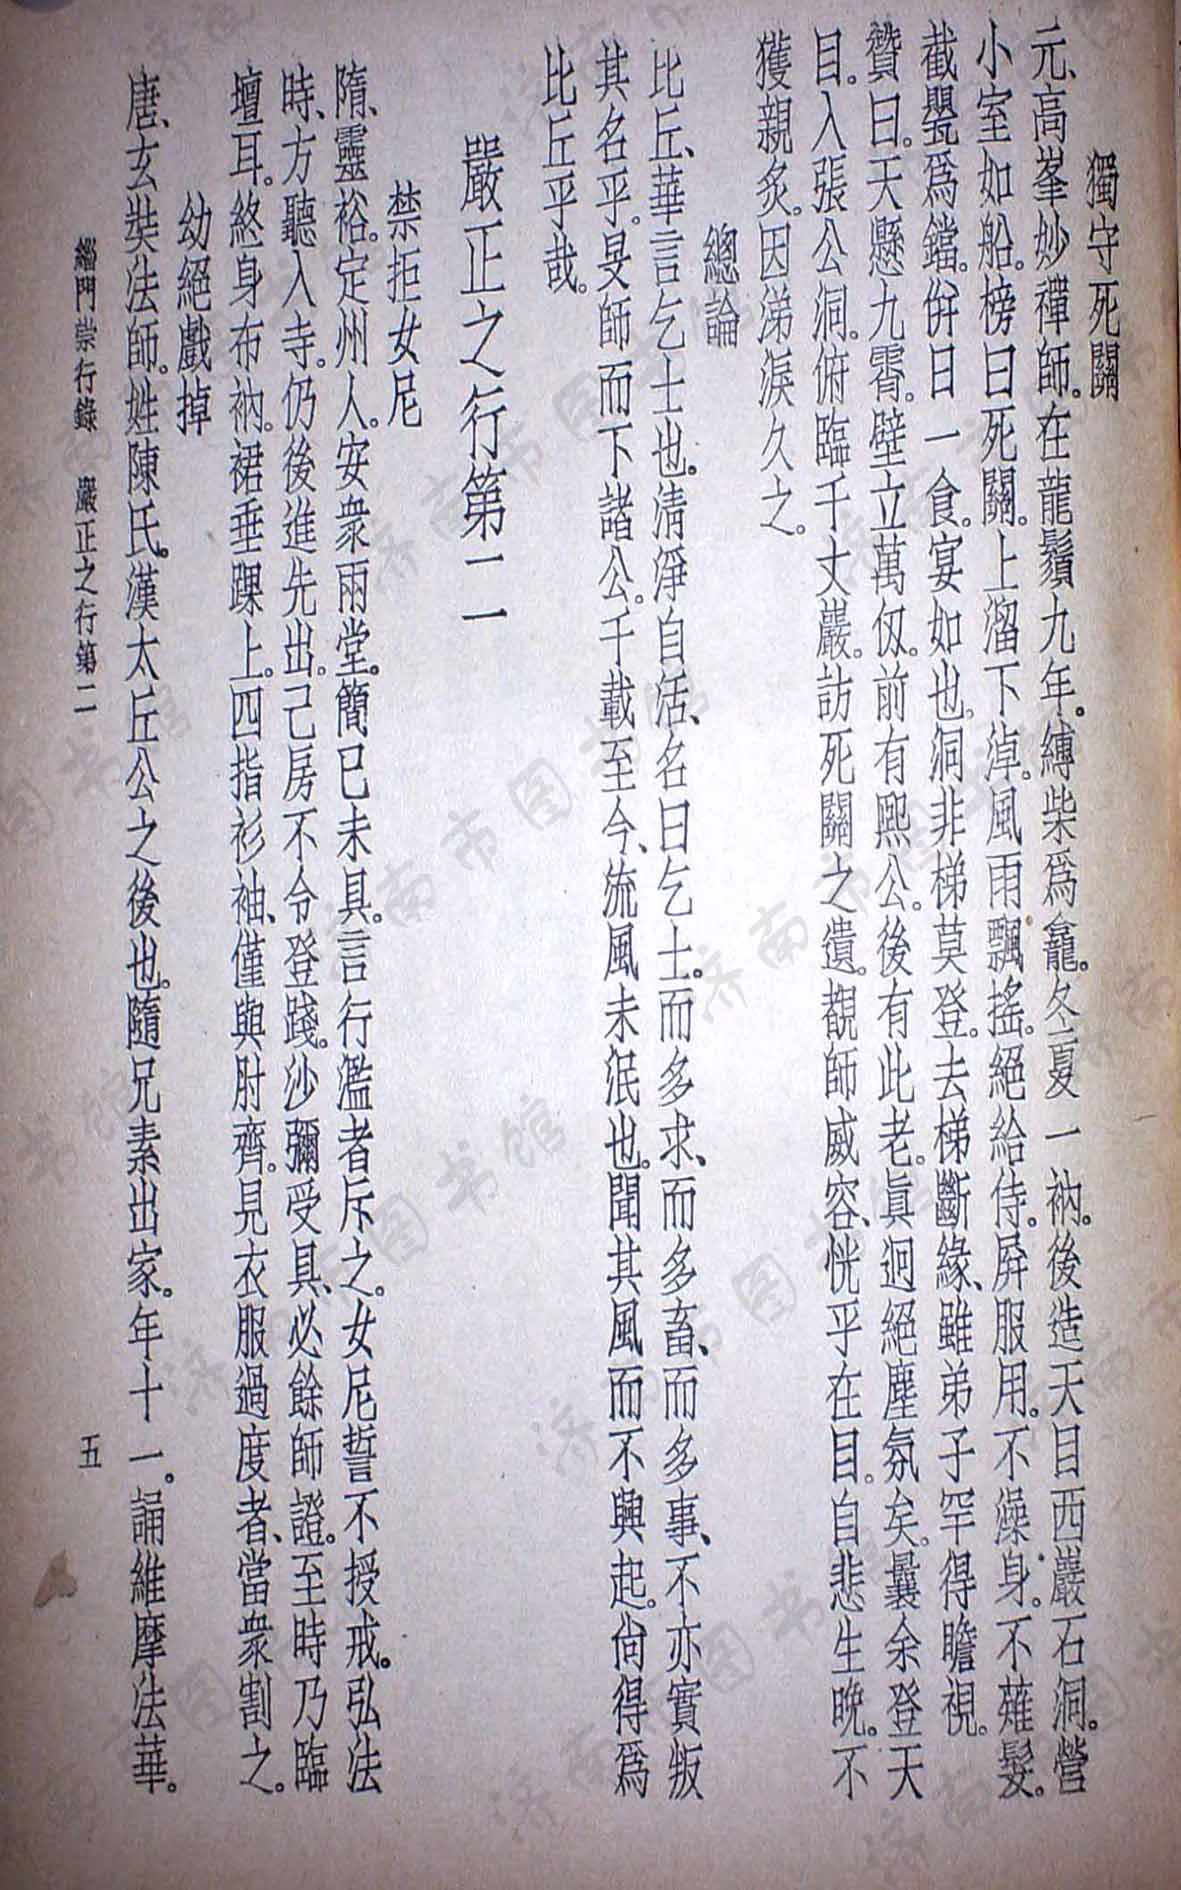 獨守死關
元、高峯妙禪師。在龍鬚九年。縛柴爲龕。冬夏一衲。後造天目西巖石洞。營
小室如船。榜曰死關。上溜下淖。風雨飄搖。絕給侍。屏服用。不澡身。不薙髮。
截甖爲鐺。倂日一食。宴如也。洞非梯莫登。去梯斷緣、雖弟子罕得瞻視。
贊曰。天懸九霄。壁立萬仭。前有熙公。後有此老。眞迥絕塵氛矣。曩余登天
目。入張公洞。俯臨千丈巖。訪死關之遺。覩師威容、恍乎在目。自悲生晚。不
獲親炙。因涕淚久之。
總論
比丘、華言乞士也。淸淨自活、名曰乞士。而多求、而多畜、而多事、不亦實叛
其名乎。旻師而下諸公。千載至今、流風未泯也。聞其風而不興起。尙得爲
比丘乎哉。
嚴正之行第二
禁拒女尼
隋、靈裕。定州人。安衆兩堂。簡已未具。言行濫者斥之。女尼誓不授戒。弘法
時、方聽入寺。仍後進先出。己房不令登踐。沙彌受具、必餘師證。至時乃臨
壇耳。終身布衲。裙垂踝上。四指衫袖、僅與肘齊。見衣服過度者、當衆割之。
幼絕戲掉
唐、玄奘法師。姓陳氏。漢太丘公之後也。隨兄素出家。年十一。誦維摩法華。
緇門崇行錄 嚴正之行第二
五
济南市图书馆